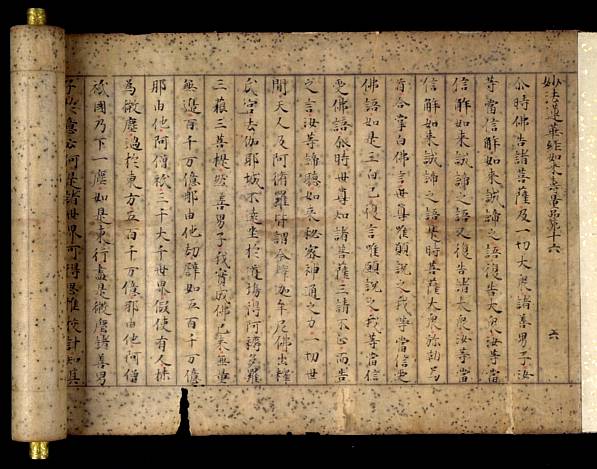 妙法蓮華經如來壽量品第十六 六
尒時佛告諸菩薩及一切大衆諸善男子汝
等當信解如來誠諦之語復告大衆汝等當
信解如來誠諦之語又復告諸大衆汝等當
信解如來誠諦之語是時菩薩大衆弥勒為
首合掌白佛言世尊唯願說之我等當信受
佛語如是三白已復言唯願說之我等當信
受佛語尒時世尊知諸菩薩三請不止而告
之言汝等諦聽如來秘密神通之力一切世
間天人及阿脩羅皆謂今釋迦牟尼佛出釋
氏宮去伽耶城不遠坐於道場得阿耨多羅
三藐三菩提然善男子我實成佛已來無量
無邊百千万億那由他劫譬如五百千万億
那由他阿僧祇三千大千世界假使有人抹
為微塵過於東方五百千万億那由他阿僧
祇國乃下一塵如是東行盡是微塵諸善男
子於意云何是諸世界可得思惟挍計知其